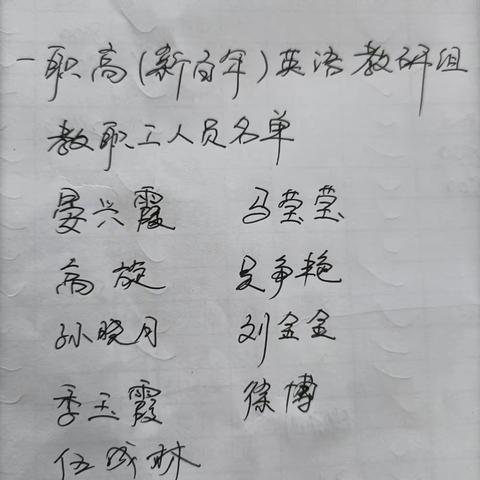 一职高(新百年)英语教研组
教职工人员名单
晏兴霞 马莹莹
高旋 吴争艳
孙晓月 刘金金
季玉霞 徐博
伍成林